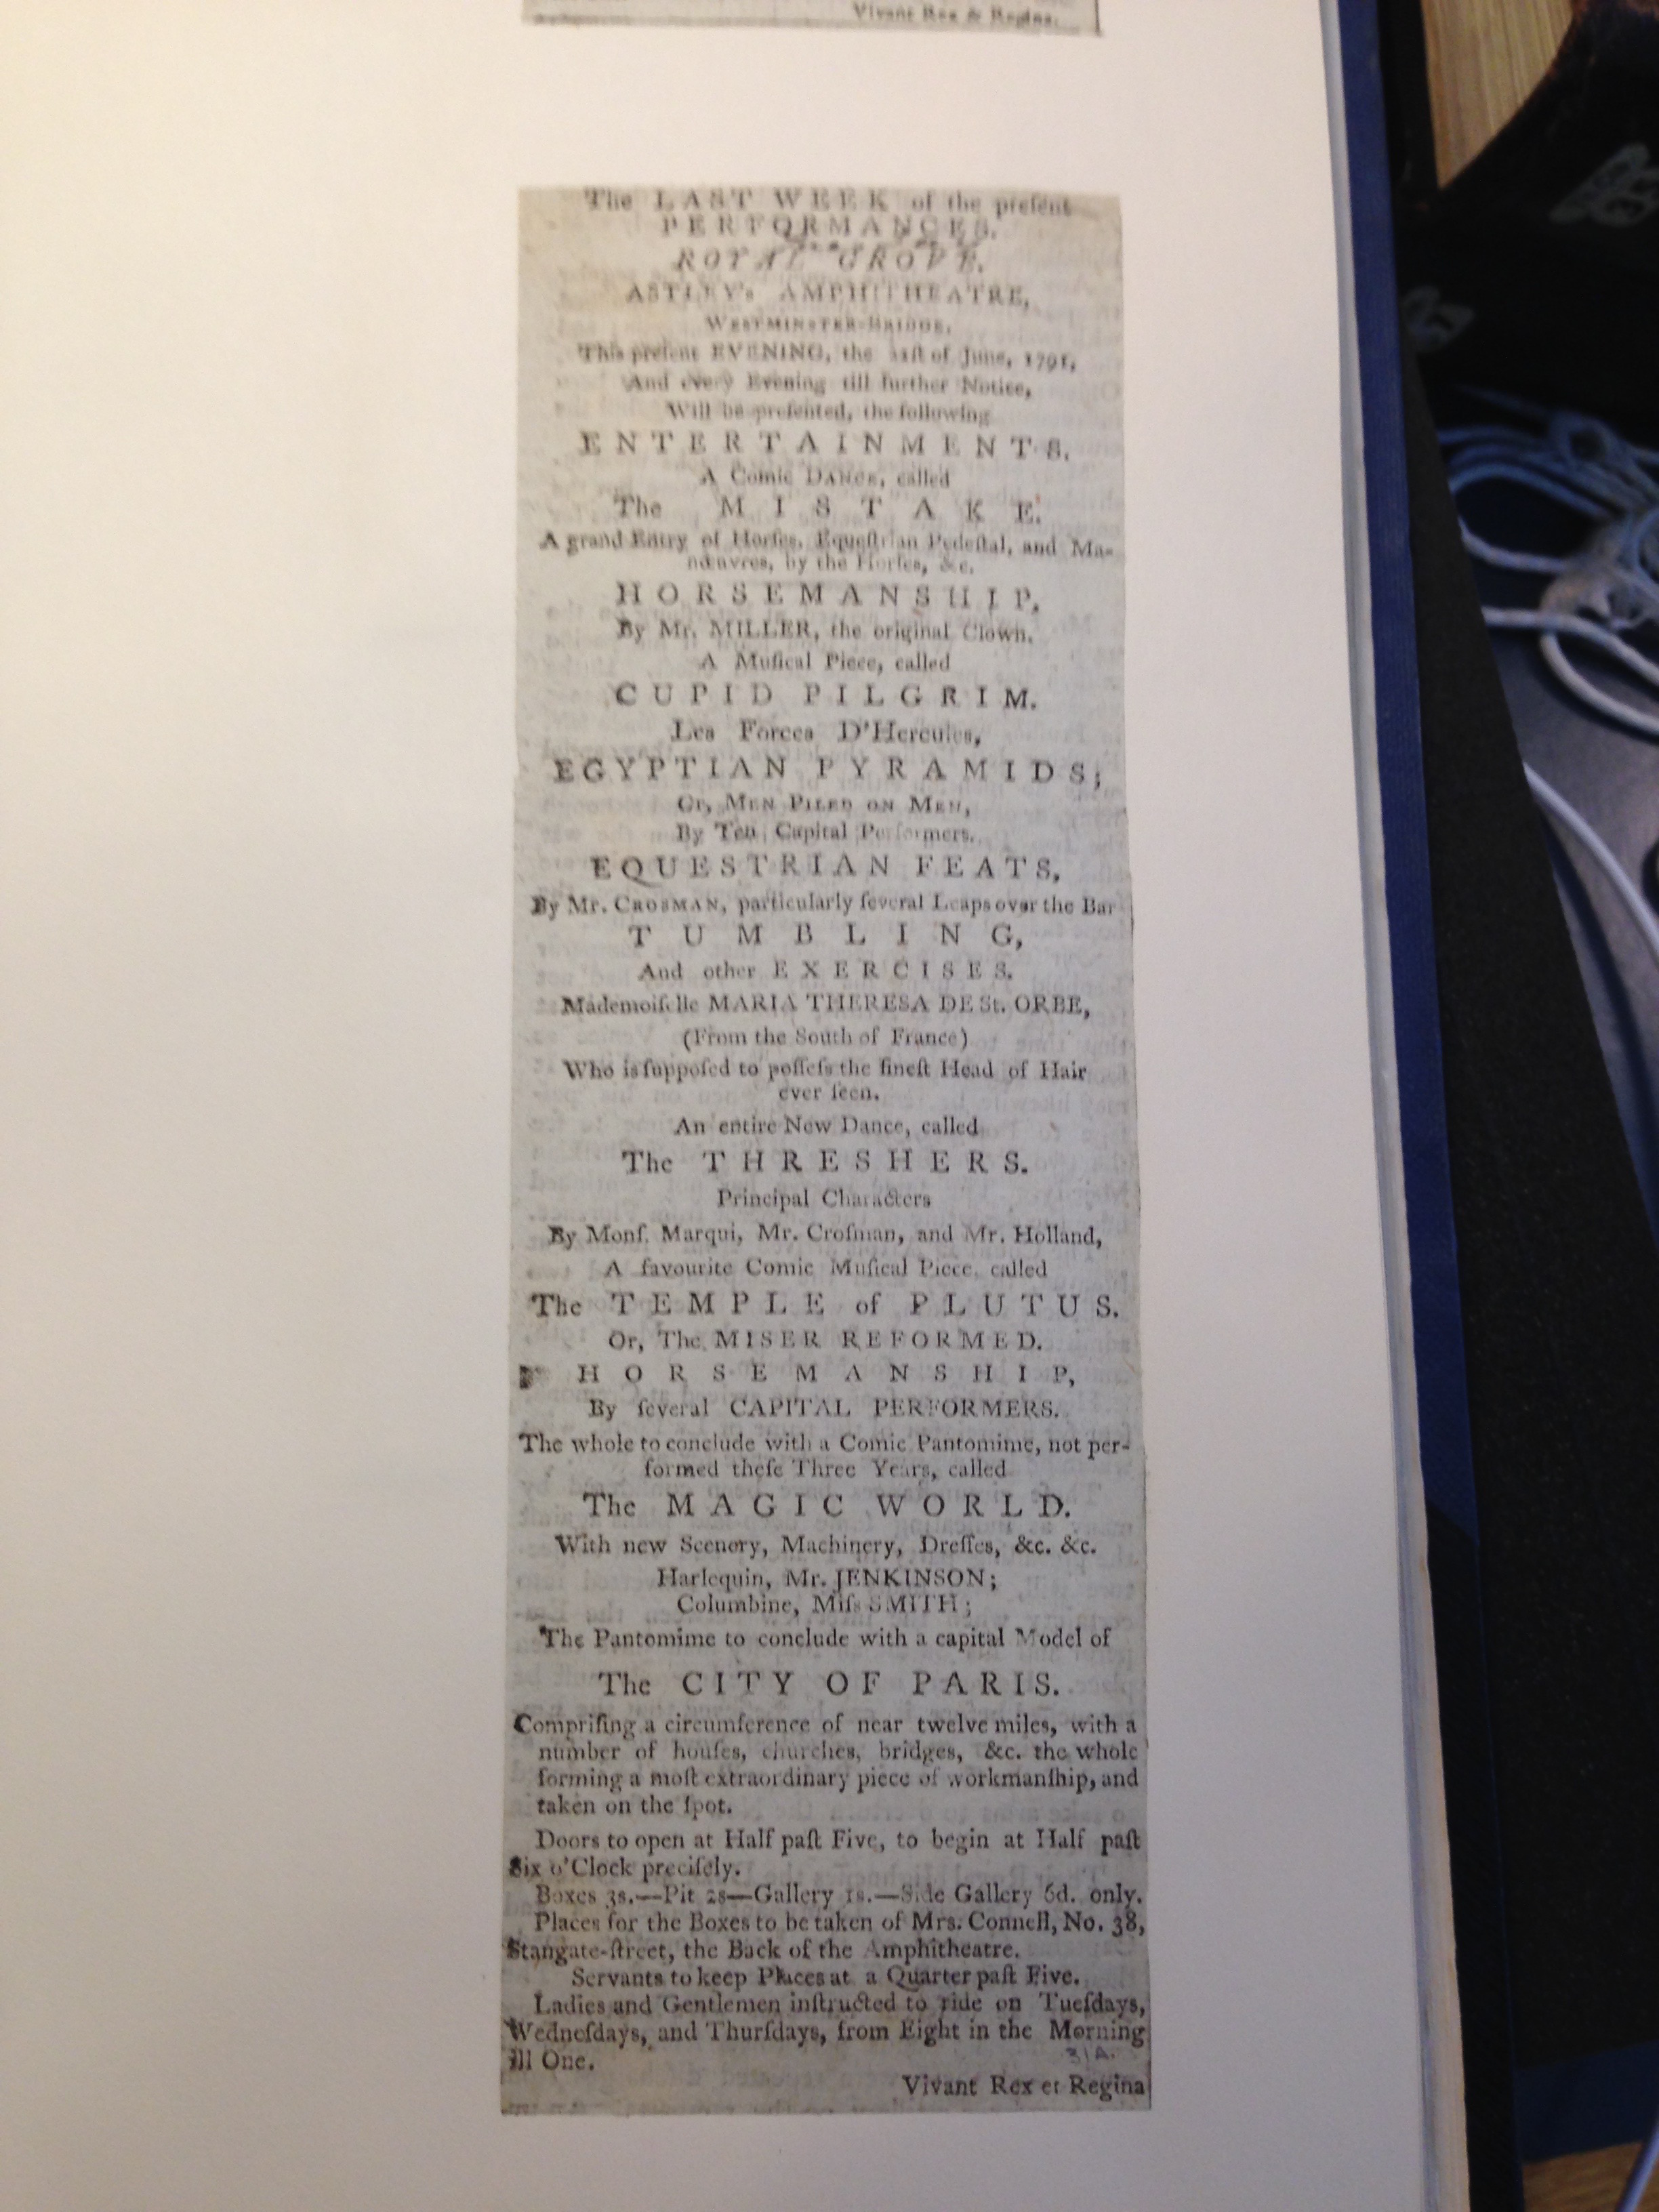 Vivant Rex & Regina.
The LAST WEEK of the preſent
PERFORMANCES.
ROYAL GROVE.
ASTLEY's AMPHITHEATRE,
WESTMINSTER-BRIDGE.
This preſent EVENING, the of June, 1791,
And every Evening till further Notice,
Will be preſented, the following
ENTERTAINMENTS.
A Comic DANCE, called
The MISTAKE.
A grand Entry of Horſes, Equeſtrian Pedeſtal, and Ma-
nœuvres, by the Horſes, &c.
HORSEMANSHIP,
By Mr. MILLER, the original Clown.
A Muſical Piece, called
CUPID PILGRIM.
Les Forces D'Hercules,
EGYPTIAN PYRAMIDS;
Or, MEN PILED ON MEN,
By Ten Capital Performers.
EQUESTRIAN FEATS,
By Mr. CROSMAN, particularly ſeveral Leaps over the Bar
TUMBLING,
And other EXERCISES.
Mademoiſelle MARIA THERESA DE St. ORBE,
(From the South of France)
Who is ſuppoſed to poſſeſs the fineſt Head of Hair
ever ſeen.
An entire New Dance, called
The THRESHERS.
Principal Characters
By Monſ. Marqui, Mr. Croſman, and Mr. Holland,
A favourite Comic Muſical Piece, called
The TEMPLE of PLUTUS.
Or, The MISER REFORMED.
HORSEMANSHIP,
By ſeveral CAPITAL PERFORMERS.
The whole to conclude with a Comic Pantomime, not per-
formed theſe Three Years, called
The MAGIC WORLD.
With new Scenery, Machinery, Dreſſes, &c. &c.
Harlequin, Mr. JENKINSON;
Columbine, Miſs SMITH;
The Pantomime to conclude with a capital Model of
The CITY OF PARIS.
Compriſing a circumference of near twelve miles, with a
number of houſes, churches, bridges, &c. the whole
forming a moſt extraordinary piece of workmanſhip, and
taken on the ſpot.
Doors to open at Half paſt Five, to begin at Half paſt
Six o'Clock preciſely.
Boxes 3s.—Pit 2s—Gallery 1s.—Side Gallery 6d. only.
Places for the Boxes to be taken of Mrs. Connell, No. 38,
Stangate-ſtreet, the Back of the Amphitheatre.
Servants to keep Places at a Quarter paſt Five.
Ladies and Gentlemen inſtructed to ride on Tueſdays,
Wedneſdays, and Thurſdays, from Eight in the Morning
ill One.
Vivant Rex et Regina